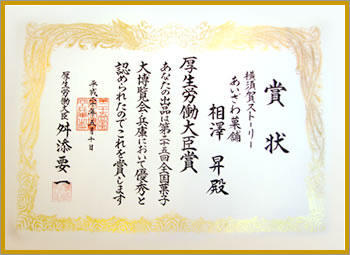 賞状
横須賀ストーリー
あいざわ菓舗
相澤 昇殿
厚生労働大臣賞
あなたの出品は第二十五回全国菓子
大博覧会・兵庫において優秀と
認められたのでこれを賞します
平成二十年五月十日
厚生労働大臣 舛添要一